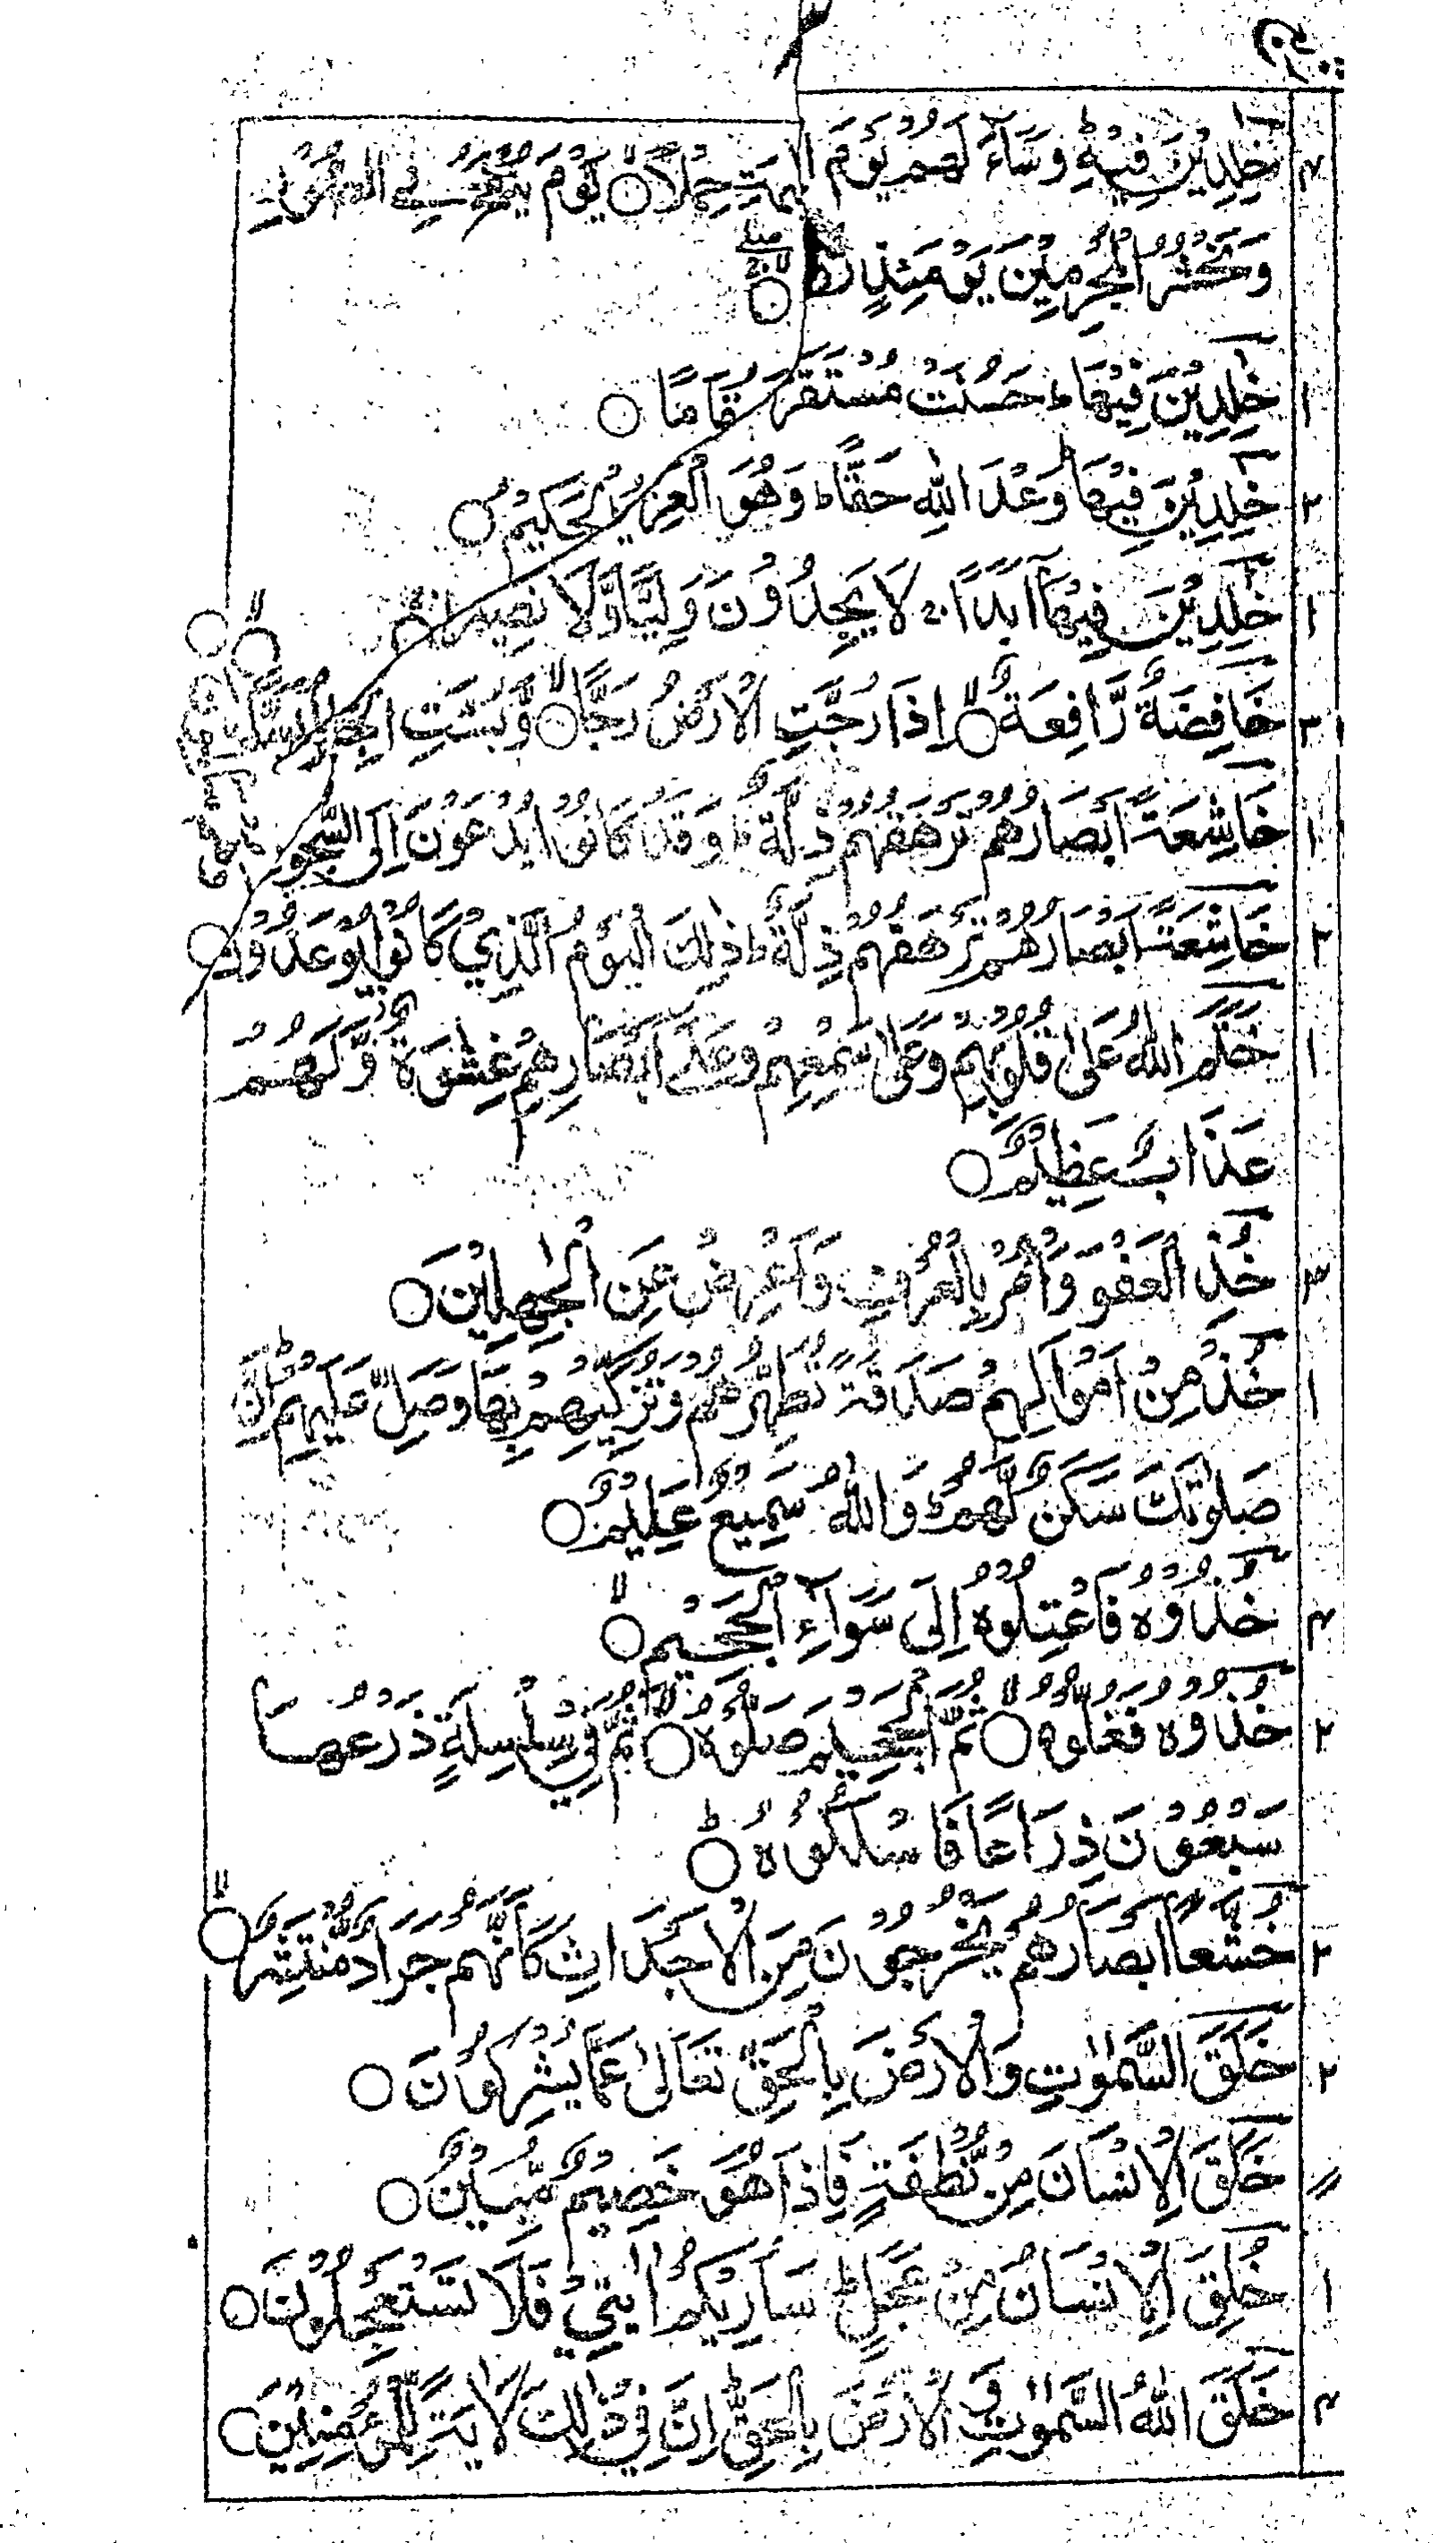 خٰلِدِيْنَ فِيْهِ ؕ وَسَآءَ لَهُمْ يَوْمَ الْقِيٰمَةِ حِمْلًا ۙ يَّوْمَ يُنْفَخُ فِي الصُّوْرِ
وَنَحْشُرُ الْمُجْرِمِيْنَ يَوْمَئِذٍ زُرْقًا
۱ خٰلِدِيْنَ فِيْهَا ؕ حَسُنَتْ مُسْتَقَرًّا وَّمُقَامًا
۲ خٰلِدِيْنَ فِيْهَا ؕ وَعْدَ اللّٰهِ حَقًّا ؕ وَهُوَ الْعَزِيْزُ الْحَكِيْمُ
۱ خٰلِدِيْنَ فِيْهَآ اَبَدًا ۚ لَا يَجِدُوْنَ وَلِيًّا وَّلَا نَصِيْرًا
۳ خَافِضَةٌ رَّافِعَةٌ ۙ اِذَا رُجَّتِ الْاَرْضُ رَجًّا ۙ وَّبُسَّتِ الْجِبَالُ بَسًّا ۙ
۱ خَاشِعَةً اَبْصَارُهُمْ تَرْهَقُهُمْ ذِلَّةٌ ؕ وَقَدْ كَانُوْا يُدْعَوْنَ اِلَى السُّجُوْدِ
۲ خَاشِعَةً اَبْصَارُهُمْ تَرْهَقُهُمْ ذِلَّةٌ ؕ ذٰلِكَ الْيَوْمُ الَّذِيْ كَانُوْا يُوْعَدُوْنَ
۱ خَتَمَ اللّٰهُ عَلٰى قُلُوْبِهِمْ وَعَلٰى سَمْعِهِمْ وَعَلٰٓى اَبْصَارِهِمْ غِشٰوَةٌ وَّلَهُمْ
عَذَابٌ عَظِيْمٌ
۳ خُذِ الْعَفْوَ وَاْمُرْ بِالْعُرْفِ وَاَعْرِضْ عَنِ الْجٰهِلِيْنَ
۱ خُذْ مِنْ اَمْوَالِهِمْ صَدَقَةً تُطَهِّرُهُمْ وَتُزَكِّيْهِمْ بِهَا وَصَلِّ عَلَيْهِمْ ؕ اِنَّ
صَلٰوتَكَ سَكَنٌ لَّهُمْ ؕ وَاللّٰهُ سَمِيْعٌ عَلِيْمٌ
۴ خُذُوْهُ فَاعْتِلُوْهُ اِلٰى سَوَآءِ الْجَحِيْمِ ۙ
۲ خُذُوْهُ فَغُلُّوْهُ ۙ ثُمَّ الْجَحِيْمَ صَلُّوْهُ ۙ ثُمَّ فِيْ سِلْسِلَةٍ ذَرْعُهَا
سَبْعُوْنَ ذِرَاعًا فَاسْلُكُوْهُ ؕ
۲ خُشَّعًا اَبْصَارُهُمْ يَخْرُجُوْنَ مِنَ الْاَجْدَاثِ كَاَنَّهُمْ جَرَادٌ مُّنْتَشِرٌ ۙ
۲ خَلَقَ السَّمٰوٰتِ وَالْاَرْضَ بِالْحَقِّ ؕ تَعٰلٰى عَمَّا يُشْرِكُوْنَ
〃 خَلَقَ الْاِنْسَانَ مِنْ نُّطْفَةٍ فَاِذَا هُوَ خَصِيْمٌ مُّبِيْنٌ
۱ خُلِقَ الْاِنْسَانُ مِنْ عَجَلٍ ؕ سَاُورِيْكُمْ اٰيٰتِيْ فَلَا تَسْتَعْجِلُوْنَ
۴ خَلَقَ اللّٰهُ السَّمٰوٰتِ وَالْاَرْضَ بِالْحَقِّ ؕ اِنَّ فِيْ ذٰلِكَ لَاٰيَةً لِّلْمُؤْمِنِيْنَ